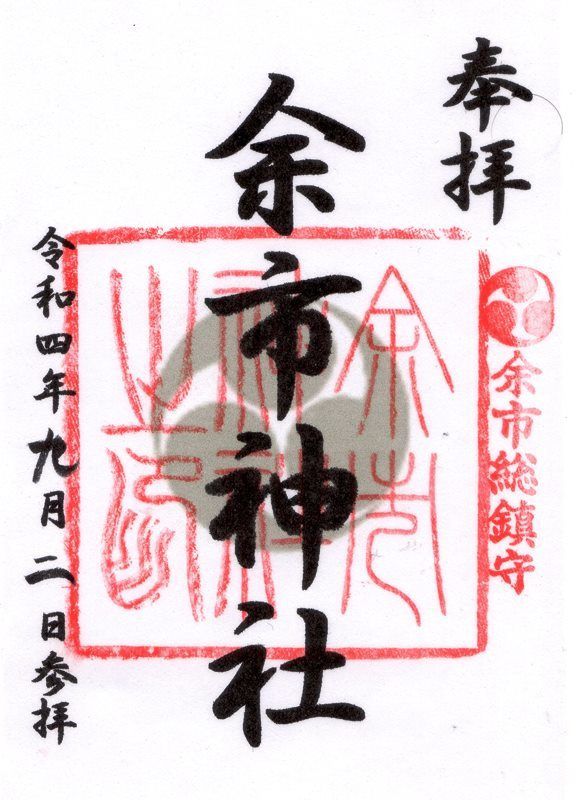 奉拝
余市総鎮守
余市神社
余市神社之印
令和四年九月二日参拝